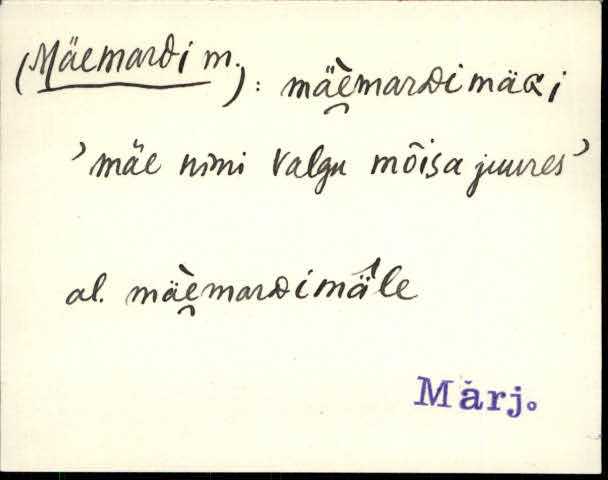 (Mäemardi m.): mäè̯marᴅimäɢi
'mäe nimi Valgu mõisa juures'
al. mäè̯marᴅimä̂le
Märj.